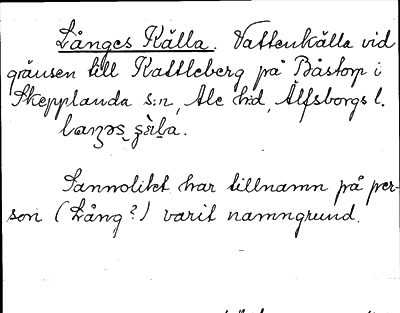 Långes Källa. Vattenkälla vid
gränsen till Kattleberg på Båstorp i
Skepplanda s:n, Ale h:d, Älfsborgs l.
Sannolikt har tillnamn på per-
son (Lång?) varit namngrund.